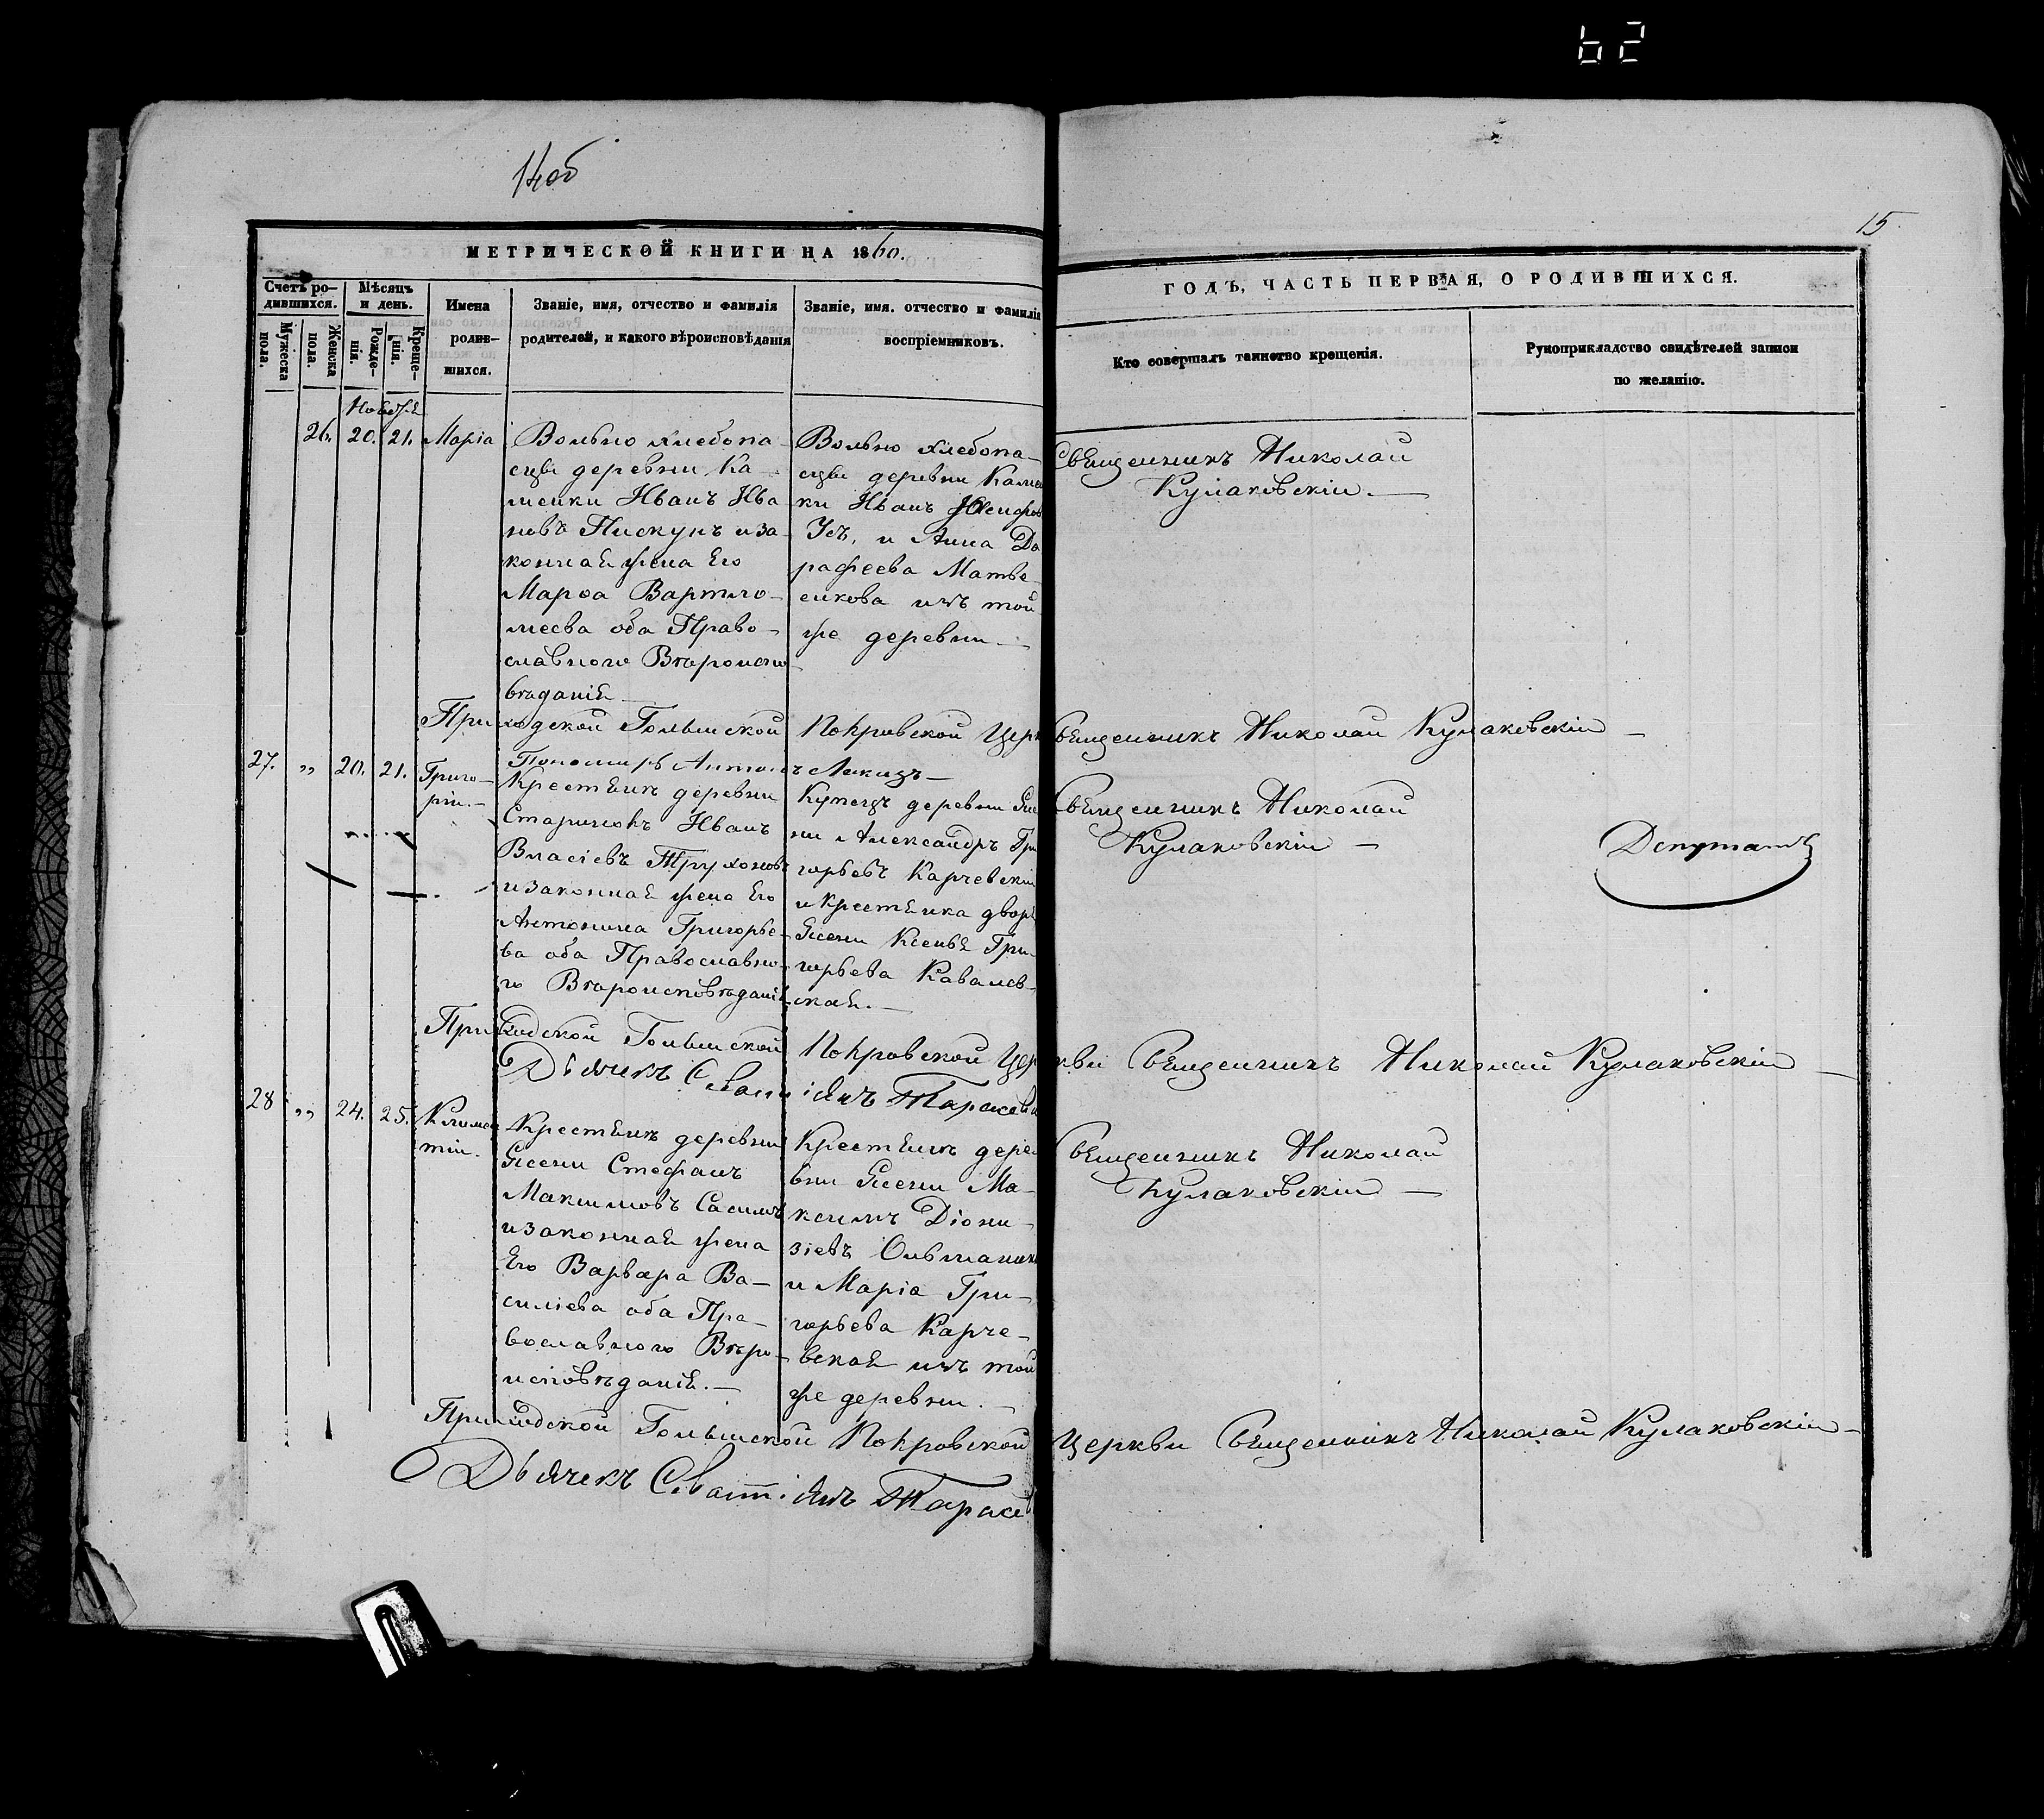 62
14об
15
МЕТРИЧЕСКОЙ КНИГИ НА 1860.
ГОДЪ, ЧАСТЬ ПЕРВАЯ, О РОДИВШИХСЯ.
Счетъ ро-
дившихся.
Мужеска
пола.
Женска
пола.
Мѣсяцъ
и день.
Рожде-
нія.
Креще-
нія.
Имена
родив-
шихся.
Званіе, имя, отчество и фамилія
родителей, и какого вѣроисповѣданія
Званіе, имя, отчество и фамилія
воспріемниковъ.
Кто совершалъ таинство крещенія.
Рукоприкладство свидѣтелей записи
по желанію.
Ноября
26. 20. 21. Марія
Вольно хлебопа-
шцы деревни Ка-
менки Иванъ Ива
новъ Пискунъ и за-
конная жена Его
Марѳа Вартло-
меева оба Право-
славного Вѣроиспо
вѣданія
Вольно хлебопа-
шцы деревни Камен
ки Иванъ
Усъ, и Анна До
рофеева Матве-
енкова изъ той
же деревни.
Священникъ Николай
Кулаковскій.
Приходской Голынской Покровской Церк Священникъ Николай Кулаковскій
Пономарь Антоній
27. „ 20. 21. Григо-
рій.
Крестянинъ деревни
Иванъ
Власіевъ Труханов
и законная жена Его
Антонина Григорье-
ва оба Православно-
го Вѣроисповѣданія
Купецъ деревни Ясе
ни Александръ Гри
горьевъ Карчевскій
и крестянка двора
Ясени Ксенья Гри-
горьева Кавалев-
ская.
Священникъ Николай
Кулаковскій
Депутатъ
Приходской Голынской Покровской Церкви Священникъ Николай Кулаковскій
Дьячекъ Тарасев
28 „ 24. 25. Климен
тій.
Крестянинъ деревни
Ясени Стефанъ
Максимовъ Сасимъ
и законная жена
Его Варвара Ва-
силіева оба Пра-
вославного Вѣро-
исповѣданія.
Крестянинъ дере
вни Ясени Ма-
ксимъ Діони-
зіевъ
и Марія Гри-
горьева Карче-
вская изъ той
же деревни.
Священникъ Николай
Кулаковскій
Приходской Голынской Покровской Церкви Священникъ Николай Кулаковскій
Дьячекъ Тарасев